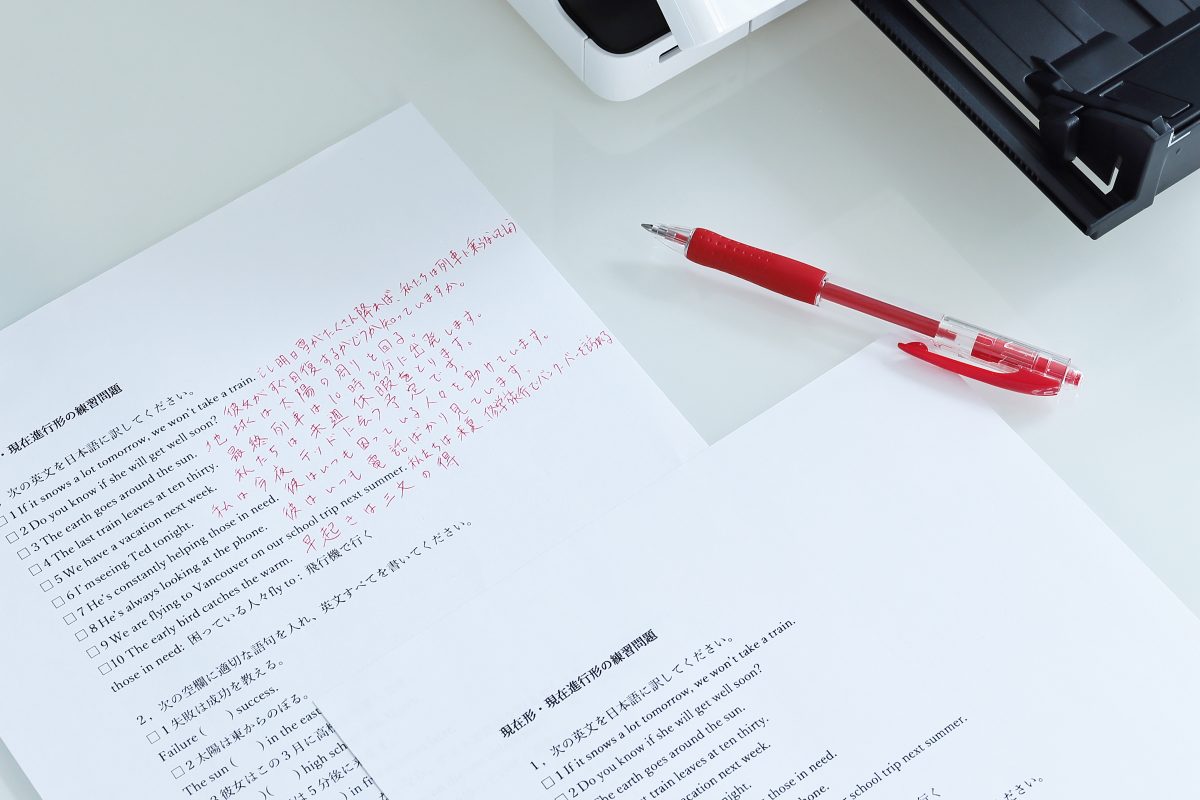 ・現在進行形の練習問題
次の英文を日本語に訳してください。
□1 If it snows a lot tomorrow, we won't take a train. もし明日雪がたくさん降れば、私たちは列車に乗らない
□2 Do you know if she will get well soon? 彼女が秋回復するかどうか知っていますか。
□3 The earth goes around the sun. 地球は太陽の周りを回る。
□4 The last train leaves at ten thirty. 最終列車は10時30分に出発します。
□5 We have a vacation next week. 私たちは来週休暇をとります。
□6 I'm seeing Ted tonight. 私は今夜テッドに会う予定です。
□7 He's constantly helping those in need. 彼はいつも困っている人々を助けています。
□8 He's always looking at the phone. 彼はいつも電話ばかり見ています。
□9 We are flying to Vancouver on our school trip next summer. 私たちは来夏修学旅行でバンクーバーを訪れる
□10 The early bird catches the warm. 早起きは三文の得
those in need: 困っている人々 fly to : 飛行機で行く
2，次の空欄に適切な語句を入れ、英文すべてを書いてください。
□1 失敗は成功を教える。
Failure ( ) success.
□2 太陽は東からのぼる。
The sun ( ) in the east
3 彼女はこの3月に高校
)( ) high sch
は5分後に
) in fi
現在形・現在進行形の練習問題
1，次の英文を日本語に訳してください。
□1 If it snows a lot tomorrow, we won't take a train.
□2 Do you know if she will get well soon?
The earth goes around the sun.
train leaves at ten thirty.
vacation next week.
night.
those in need.
phone.
r school trip next summer.
行く
ださい。